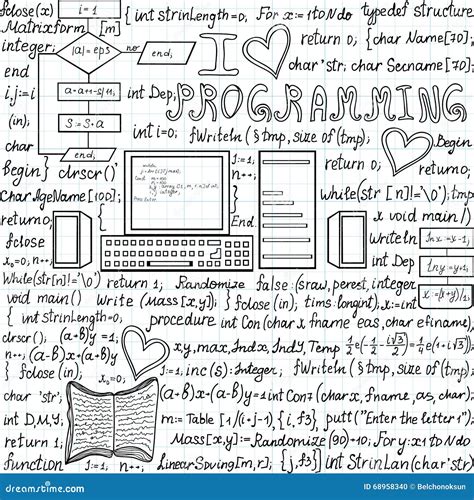 fclose(x)
i = 1
{ int strinLength = 0; For x := 1 to N do
typedef structure
Matrixform [m]
integer;
|a| = eps
no
end;
I
return 0; { char Name[70];
char *str; char Secname[70];
end
i,j := i
(in);
char
a = a*1-s/11;
S := S·a
int Dep;
PROGRAMMING
int i = 0; fWriteln ( § tmp, size of (tmp);
Begin
return 0;
begin }
end;
clrscr() }
CharAgeName [100];
return 0;
fclose
x₀ = 0; n++;
i := 1;
n++;
}
End.
return 0; } char
while(str[n]!='\0'); tmp
x void main()
Writeln
int Dep
lnx = y-1;
lny = y+1;
x := (x+y)
While(str[n]!='\0') return 1; Randomize false (sraw, perest, integer
void main() Write (Mass[x,y]; } fclose (in); tims longint); x := int
{ int strinLength = 0; procedure int Con(char x fname eas, char efiname),
clrscr(); (a+b)y = 1;
(n)!='\0'); (a+b)y = 1;
x,y, max, Indx, IndY, Temp
fclose (in);
x₀ = 0;
}:=1, inc(s): Integer; fWriteln ( § tmp, size of (tmp);
char *str;
(a+b)x+(a+b)y = 1 int Con (char x fname,
int D,M,Y;
m := Table [1/(i+j-1), {i,f3}, putt("Enter the letter 1");
return 1;
Mass[x,y] := Randomize (90)+10; For y := 1 to N do
function
LinearSuring[m,r]; {int strinLength = 0; {i,f3}
dreamstime.com
ID 68958340 © Belchonoksun